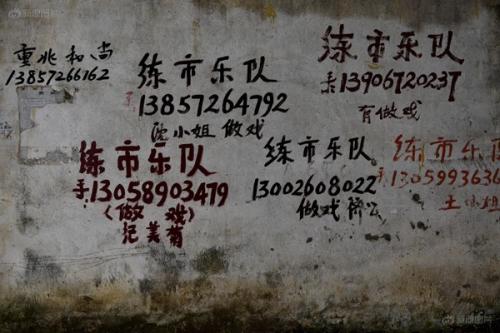 重兆和尚
13857266162
练市乐队
13857264792
沈小姐做戏
练市乐队
手:13906720237
有做戏
练市乐队
手:13058903479
(做戏)
纪美菊
练市乐队
13002608022
做戏济公
练市乐队
手:1305993636
王小姐